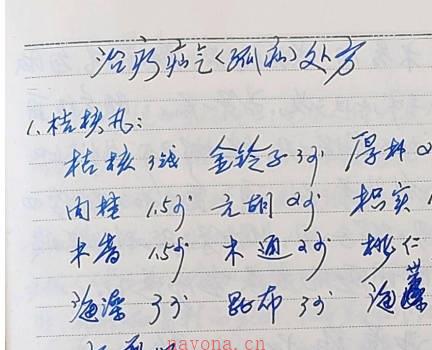 治疗疝气(狐疝)处方
1.桔核丸:
桔核 3钱 金铃子 3分 厚朴 2
肉桂 1.5分 元胡 2分 枳实 1
木香 1.5分 木通 2分 桃仁
海藻 3分 昆布 3分 海
nayona.cn